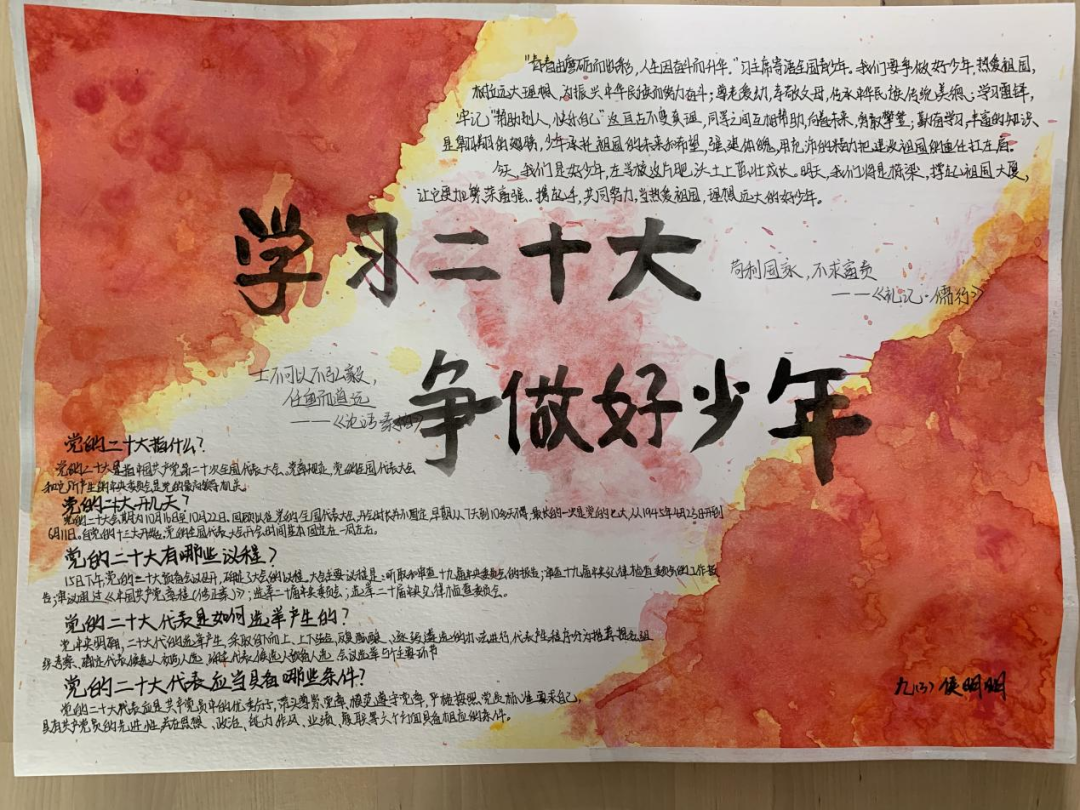 "青春由磨砺而出彩，人生因奋斗而升华。"习主席寄语全国青少年。我们要争做好少年，热爱祖国，
树立远大理想，为振兴中华民族而努力奋斗；尊老爱幼，孝敬父母，传承中华民族传统美德；学习雷锋，
牢记"帮助别人，快乐自己"这亘古不变真理，同学之间互相帮助，向着未来，勇敢攀登；勤奋学习，丰富的知识
是翱翔的翅膀，少年承托祖国的未来和希望，强健体魄，用充沛的精力把建设祖国的重任扛在肩。
今天，我们是好少年，在学校这片肥沃土上茁壮成长。明天，我们将是栋梁，撑起祖国大厦，
让它更加繁荣富强。携起手，共同努力，当热爱祖国，理想远大的好少年。
学习二十大
苟利国家，不求富贵
——《礼记·儒行》
争做好少年
士不可以不弘毅，
任重而道远
——《论语·泰伯》
党的二十大指什么？
党的二十大是指中国共产党第二十次全国代表大会。党章规定，党的全国代表大会
和它所产生的中央委员会是党的最高领导机关。
党的二十大开几天？
党的二十大会期为10月16日至10月22日。回顾以往党的全国代表大会，开会时长并不固定，早期从7天到10多天不等，最长的一次是党的七大，从1945年4月23日开到
6月11日。自党的十三大开始，党的全国代表大会开会时间基本固定在一周左右。
党的二十大有哪些议程？
15日下午，党的二十大预备会议召开，确定了大会的议程。大会主要议程是：听取和审查十九届中央委员会的报告；审查十九届中央纪律检查委员会的工作报
告；审议通过《中国共产党章程(修正案)》；选举二十届中央委员会；选举二十届中央纪律检查委员会。
党的二十大代表是如何选举产生的？
党中央明确，二十大代表的选举产生，采取自下而上、上下结合、反复酝酿、逐级遴选的办法进行，代表产生程序分为推荐提名、组
织考察、确定代表候选人初步人选、确定代表候选人预备人选、会议选举5个主要环节
党的二十大代表应当具备哪些条件？
党的二十大代表应是共产党员中的优秀分子，带头尊崇党章，模范遵守党章，严格按照党员标准要求自己，
具有共产党员的先进性，并在思想、政治、能力、作风、业绩、履职等六个方面具备相应的条件。
九(3) 侯明明